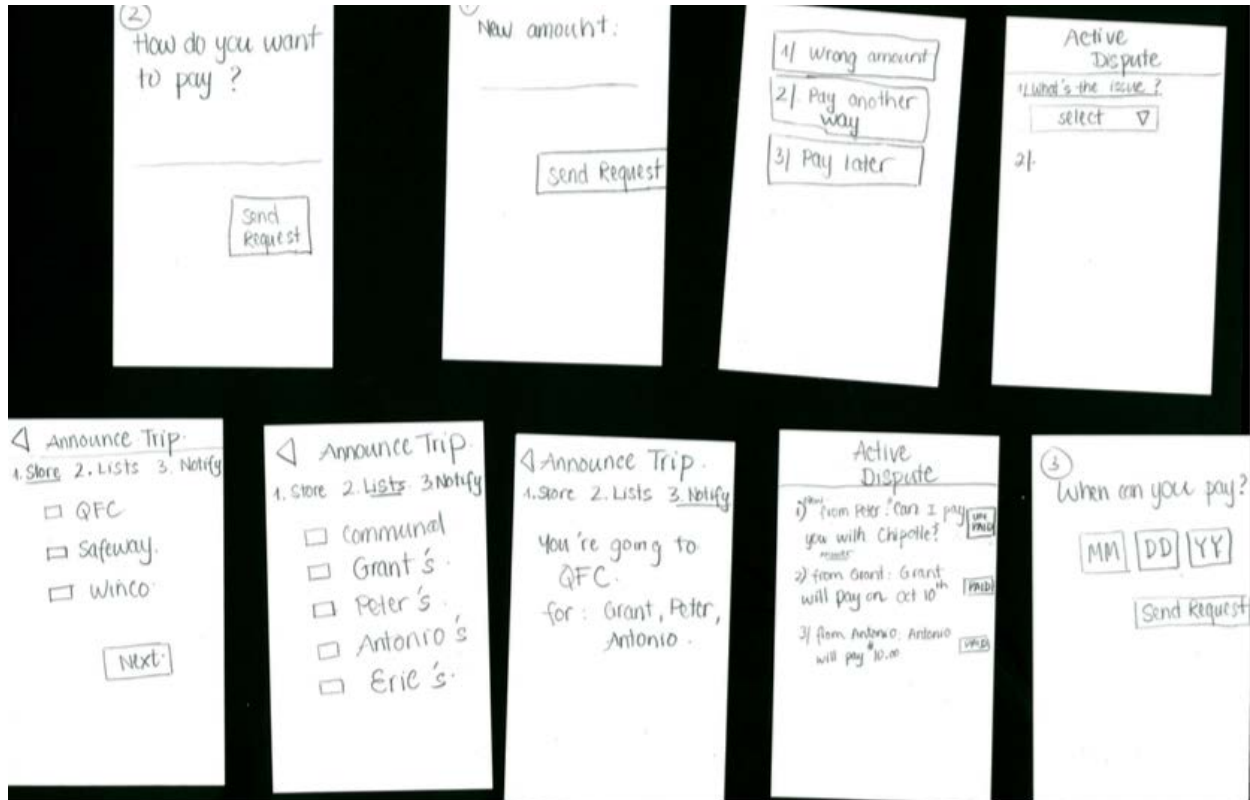 2
How do you want
to pay ?
Send
Request
New amount:
Send Request
1/ Wrong amount
2/ Pay another
way
3/ Pay later
Active
Dispute
1/ What's the issue ?
select
2/.
Announce Trip.
1. Store 2. Lists 3. Notify
QFC
Safeway.
Winco.
Next.
Announce Trip.
1. Store 2. Lists 3. Notify
Communal
Grant's.
Peter's.
Antonio's
Eric's.
Announce Trip.
1. Store 2. Lists 3. Notify
You're going to
QFC.
for: Grant, Peter,
Antonio.
Active
Dispute
1) from Peter: "Can I pay
you with Chipotle?
UN
PAID
2) from Grant: Grant
will pay on Oct 10th
PAID
3/ from Antonio: Antonio
will pay $10.00
3
When can you pay?
MM DD YY
Send Request